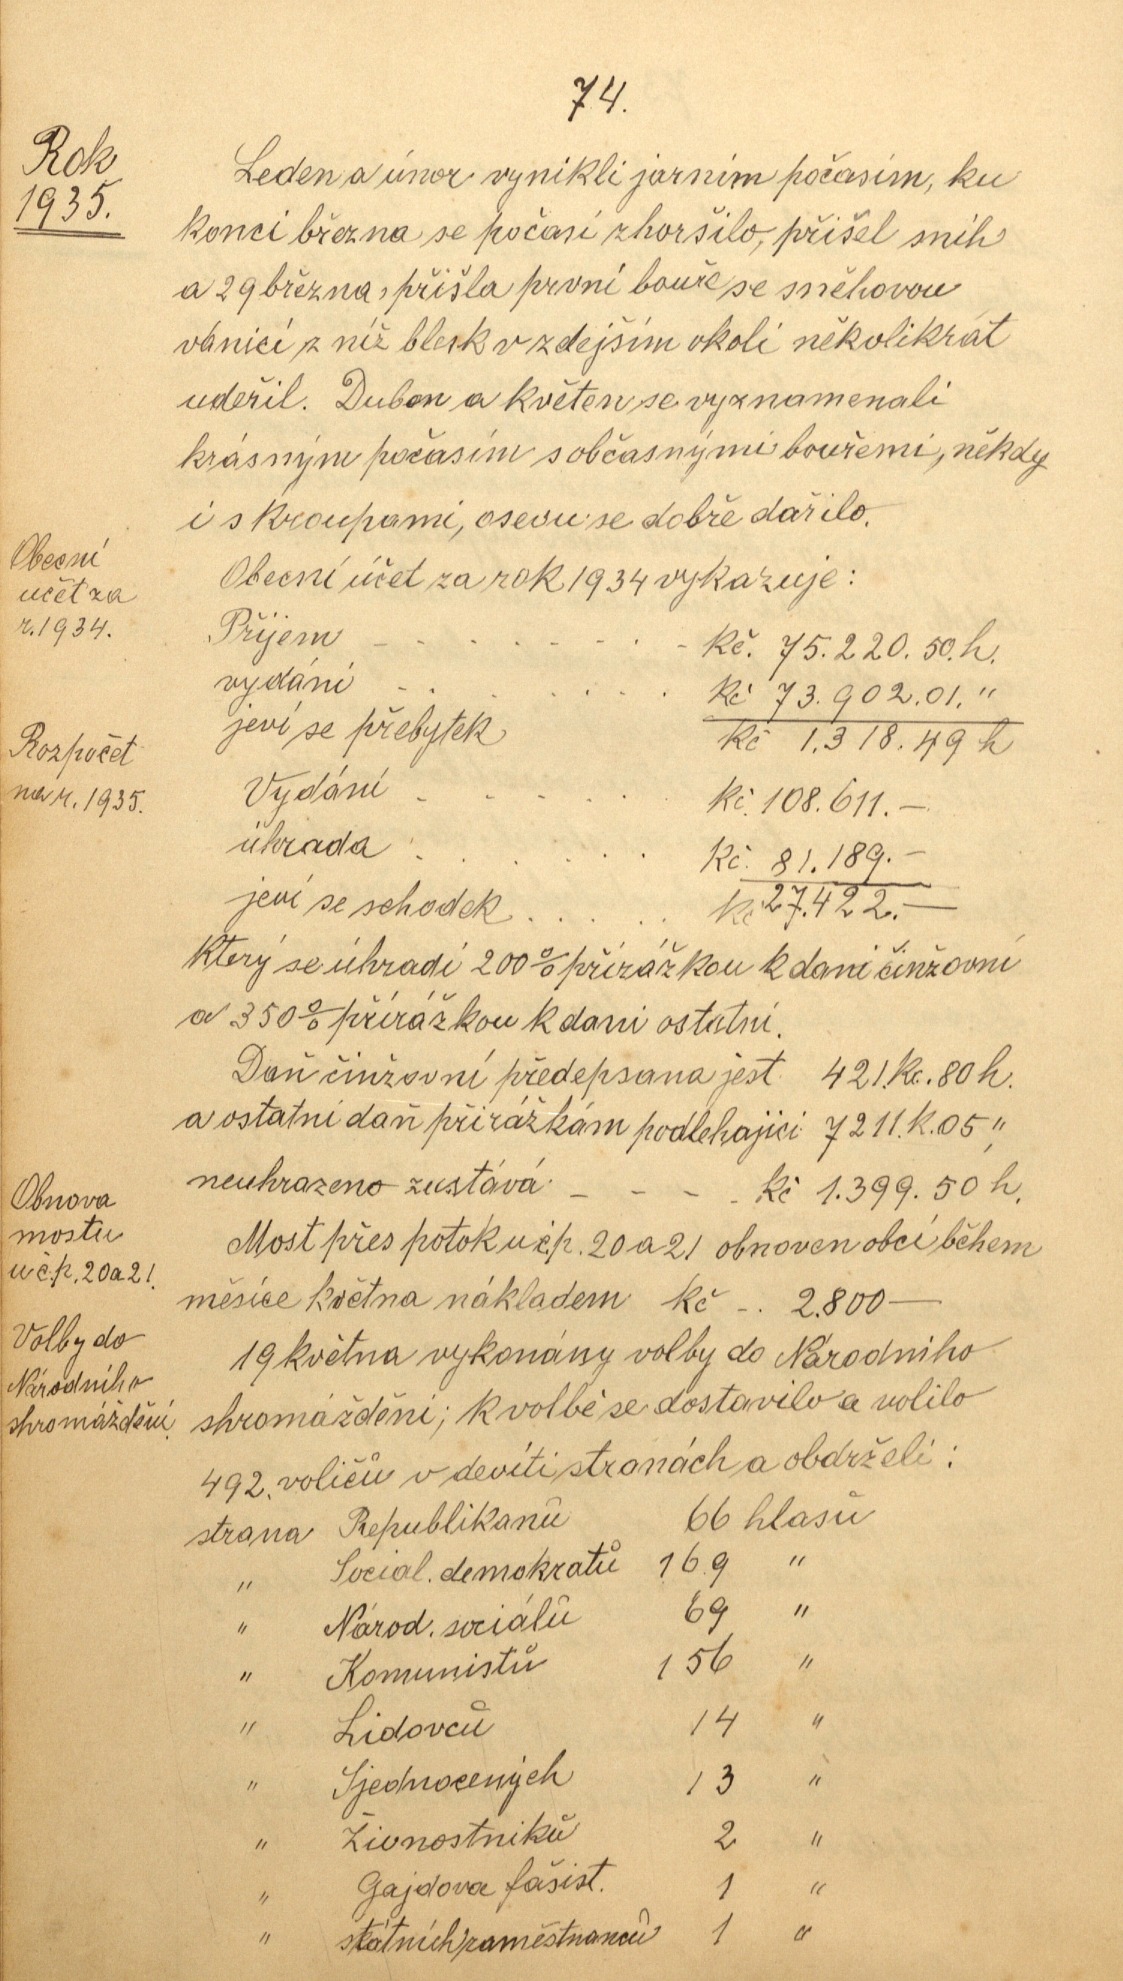 74.
Rok
1935.
Leden a únor vynikli jarním počasím, ku
konci března se počasí zhoršilo, přišel sníh
a 29 března, přišla první bouře se sněhovou
vánicí z níž blesk v zdejším okolí několikrát
udeřil. Duben a květen se vyznamenali
krásným počasím s občasnými bouřemi, někdy
i s kroupami, osevu se dobře dařilo.
Obecní
účet za
r. 1934.
Obecní účet za rok 1934 vykazuje:
Příjem - - - - - - - Kč. 75.220.50.h.
vydání - . . . . . . Kč 73.902.01. "
jeví se přebytek Kč 1.318.49 h
Rozpočet
na r. 1935.
Vydání - - - - . . Kč. 108.611.—
úhrada . . . . . . Kč. 81.189.—
jeví se schodek . . . . . Kč 27.422.—
Který se úhradí 200% přirážkou k dani činžovní
a 350% přirážkou k dani ostatní.
Daň činžovní předepsana jest 421.Kč.80 h.
a ostatní daň přirážkám podlehající 7211.K.05 "
neuhrazeno zustává - - - - Kč 1.399.50 h.
Obnova
mostu
u č.p. 20 a 21.
Most přes potok u č.p. 20 a 21 obnoven obcí během
měsíce května nákladem Kč -. 2.800—
Volby do
Národního
shromáždění.
19 května vykonány volby do Národního
shromáždění; k volbě se dostavilo a volilo
492. voličů v devíti stranách a obdrželi:
strana Republikanů 66 hlasů
" Social. demokratů 169 "
" Národ. sociálů 69 "
" Komunistů 156 "
" Lidovců 14 "
" Sjednocených 13 "
" Živnostníků 2 "
" Gajdova fašist. 1 "
" státních zaměstnanců 1 "